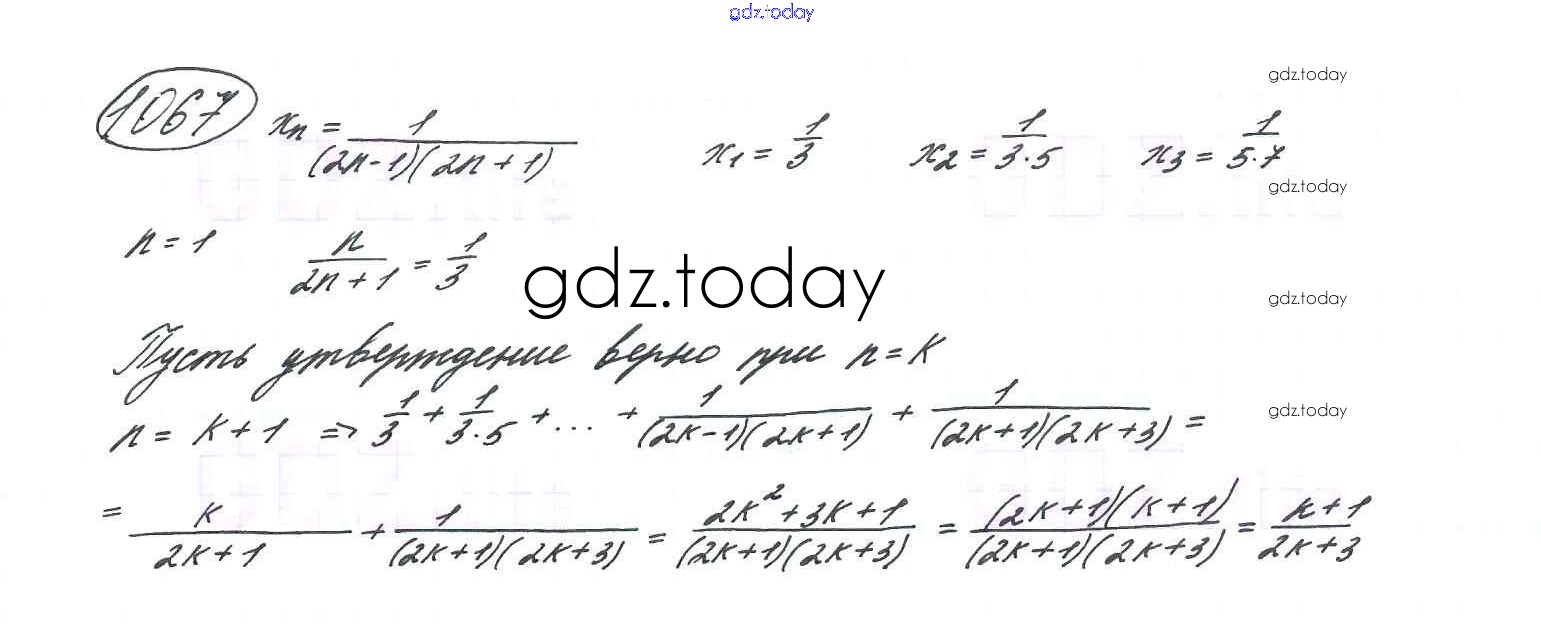 gdz.today
gdz.today
1067 xₙ = 1/((2n-1)(2n+1)) x₁ = 1/3 x₂ = 1/(3·5) x₃ = 1/(5·7)
gdz.today
n = 1 n/(2n+1) = 1/3
gdz.today
gdz.today
Пусть утверждение верно при n = k
n = k+1 ⇒ 1/3 + 1/(3·5) + ... + 1/((2k-1)(2k+1)) + 1/((2k+1)(2k+3)) =
gdz.today
= k/(2k+1) + 1/((2k+1)(2k+3)) = (2k²+3k+1)/((2k+1)(2k+3)) = ((2k+1)(k+1))/((2k+1)(2k+3)) = (k+1)/(2k+3)